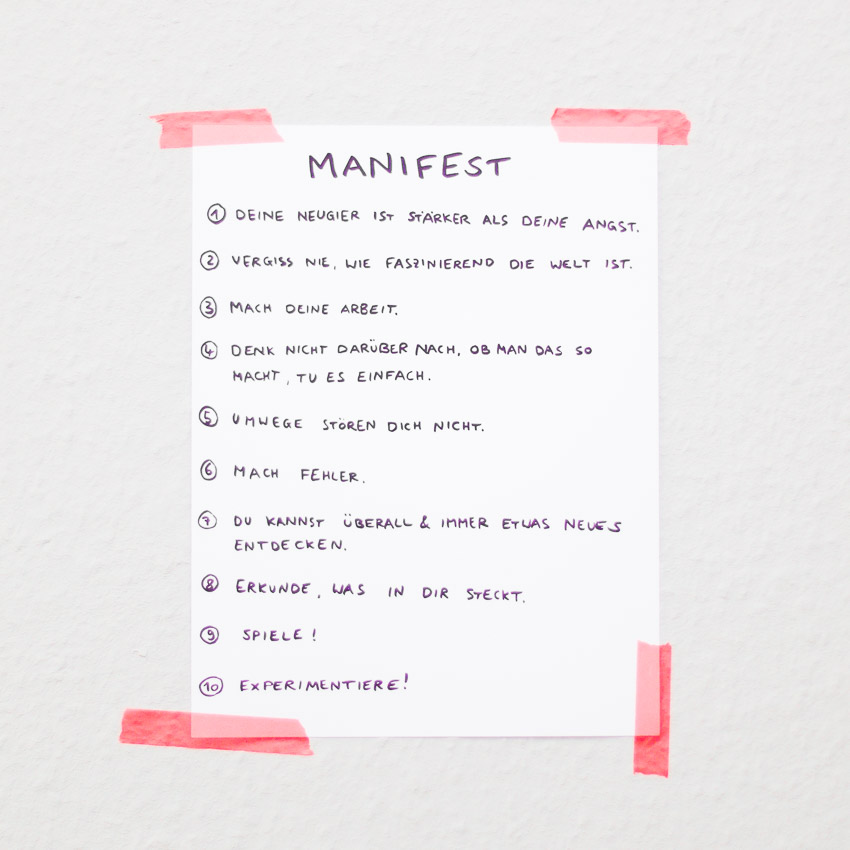 MANIFEST
① DEINE NEUGIER IST STÄRKER ALS DEINE ANGST.
② VERGISS NIE, WIE FASZINIEREND DIE WELT IST.
③ MACH DEINE ARBEIT.
④ DENK NICHT DARÜBER NACH, OB MAN DAS SO
MACHT, TU ES EINFACH.
⑤ UMWEGE STÖREN DICH NICHT.
⑥ MACH FEHLER.
⑦ DU KANNST ÜBERALL & IMMER ETWAS NEUES
ENTDECKEN.
⑧ ERKUNDE, WAS IN DIR STECKT.
⑨ SPIELE!
⑩ EXPERIMENTIERE!